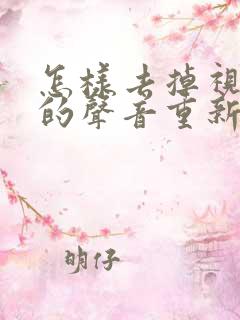 怎樣去掉視
的聲音重新
明仔